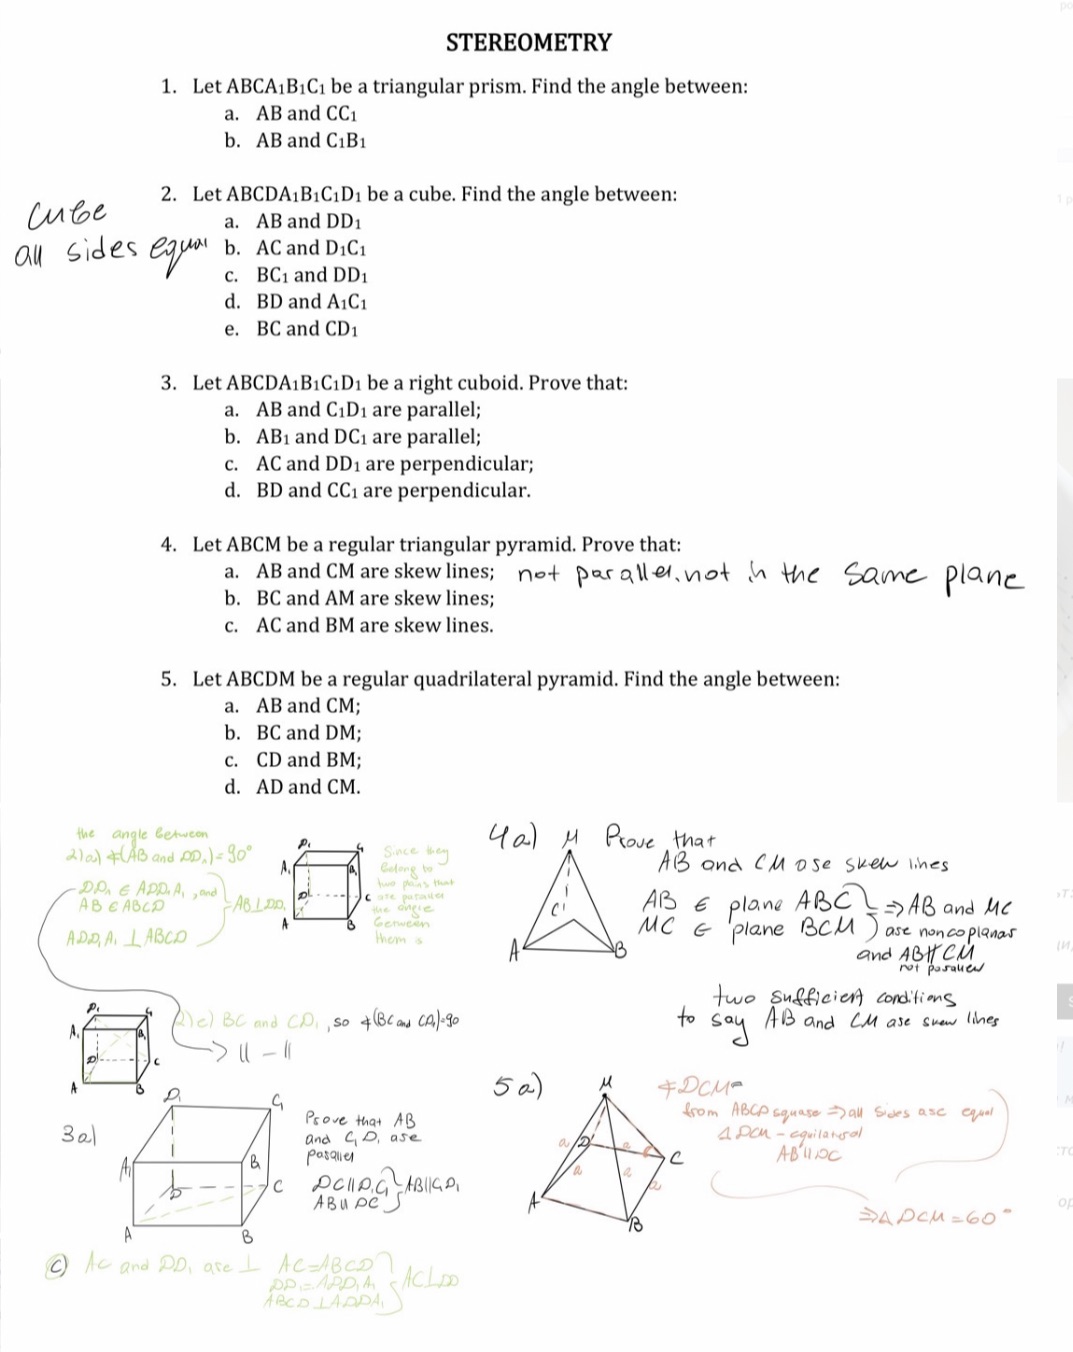 STEREOMETRY
1. Let ABCA₁B₁C₁ be a triangular prism. Find the angle between:
a. AB and CC₁
b. AB and C₁B₁
2. Let ABCDA₁B₁C₁D₁ be a cube. Find the angle between:
cube
all sides equal
a. AB and DD₁
b. AC and D₁C₁
c. BC₁ and DD₁
d. BD and A₁C₁
e. BC and CD₁
3. Let ABCDA₁B₁C₁D₁ be a right cuboid. Prove that:
a. AB and C₁D₁ are parallel;
b. AB₁ and DC₁ are parallel;
c. AC and DD₁ are perpendicular;
d. BD and CC₁ are perpendicular.
4. Let ABCM be a regular triangular pyramid. Prove that:
a. AB and CM are skew lines; not parallel, not in the same plane
b. BC and AM are skew lines;
c. AC and BM are skew lines.
5. Let ABCDM be a regular quadrilateral pyramid. Find the angle between:
a. AB and CM;
b. BC and DM;
c. CD and BM;
d. AD and CM.
the angle between
2)a) ∡(AB and DD₁)=90°
DD₁ ∈ ADD₁A₁, and
AB ∈ ABCD
AB⊥DD₁
ADD₁A₁ ⊥ ABCD
D₁ C₁
A₁ B₁
D C
A B
Since they
belong to
two that
are
the angle
between
them is
4a) M Prove that
AB and CM are skew lines
AB ∈ plane ABC
MC ∈ plane BCM
⇒ AB and MC
are noncoplanar
and AB∦CM
not parallel
C
A B
two sufficient conditions
to say AB and CM are skew lines
D₁ C₁
A₁ B₁
D C
A B
2)e) BC and CD₁, so ∡(BC and CD₁)=90
→ || – ||
3a)
D₁ C₁
A₁ B₁
D C
A B
Prove that AB
and C₁D₁ are
parallel
DC||D₁C₁
AB||DC
AB||C₁D₁
5a)
M
D C
A B
a a a a a
∡DCM=
from ABCD square ⇒ all sides are equal
Δ DCM - equilateral
AB||DC
⇒∡DCM=60°
c) AC and DD₁ are ⊥ AC=ABCD
DD₁=ADD₁A₁
ABCD⊥ADDA₁
AC⊥DD